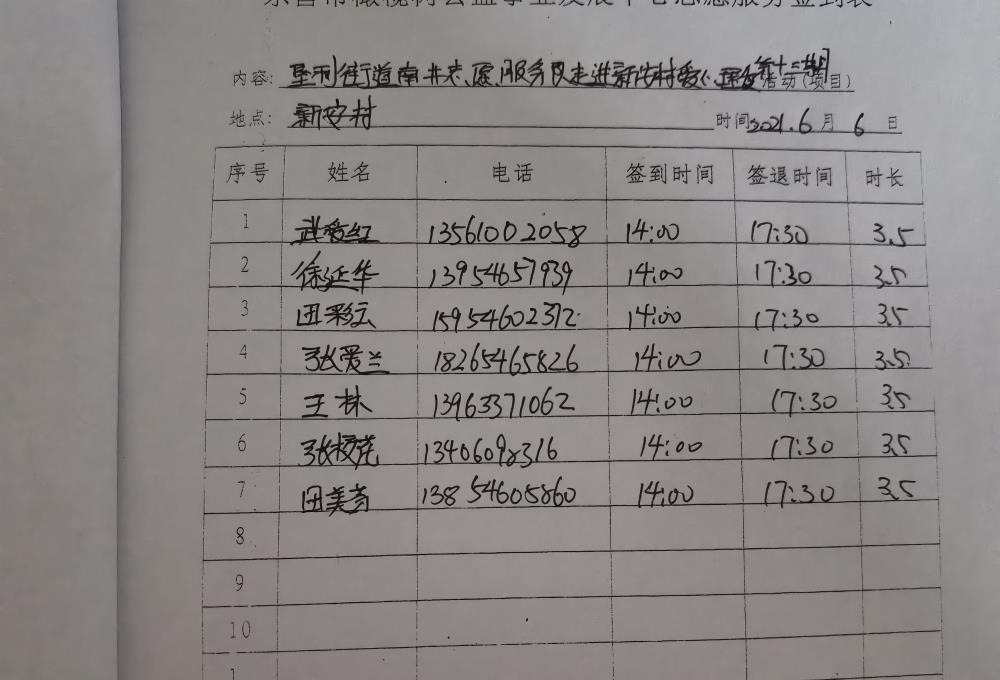 东营市橄榄树公益事业发展中心志愿服务签到表
内容: 垦利街道南井志愿服务队走进新安村 活动(项目)
地点: 新安村 时间2021.6月6日
序号 姓名 电话 签到时间 签退时间 时长
1 武爱红 13561002058 14:00 17:30 3.5
2 徐延华 13954657939 14:00 17:30 3.5
3 田彩云 15954602372 14:00 17:30 3.5
4 张爱兰 18265465826 14:00 17:30 3.5
5 王林 13963371062 14:00 17:30 3.5
6 张 13406098316 14:00 17:30 3.5
7 田美 13854605860 14:00 17:30 3.5
8
9
10